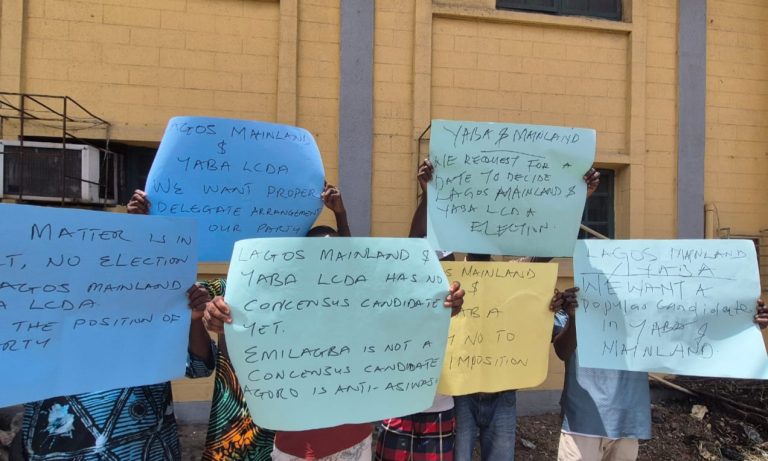 LAGOS MAINLAND
$
YABA LCDA
WE WANT PROPER
DELEGATE ARRANGEMENT
OUR PARTY
YABA $ MAINLAND
WE REQUEST FOR A
DATE TO DECIDE
LAGOS MAINLAND $
YABA LCDA
ELECTION.
MATTER IS IN
NO ELECTION
LAGOS MAINLAND
LCDA.
THE POSITION OF
LAGOS MAINLAND $
YABA LCDA HAS NO
CONCENSUS CANDIDATE
YET.
EMILAGBA IS NOT A
CONCENSUS CANDIDATE
AGORO IS ANTI-ASIWAJ
MAINLAND
$
NO TO
IMPOSITION
LAGOS MAINLAND
YABA
WE WANT A
POPULAR CANDIDATE
IN YABA $
MAINLAND.